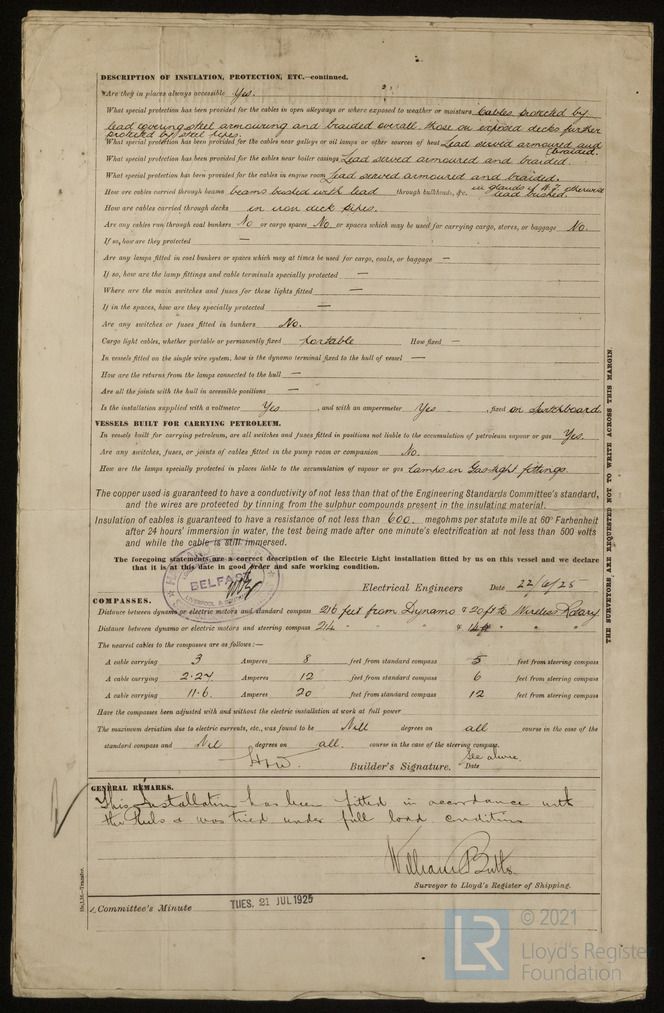 DESCRIPTION OF INSULATION, PROTECTION, ETC.—continued.
Are they in places always accessible Yes.
What special protection has been provided for the cables in open alleyways or where exposed to weather or moisture Cables protected by
lead covering steel armouring and braided overall. those on exposed decks further
protected by steel pipes.
What special protection has been provided for the cables near galleys or oil lamps or other sources of heat Lead served armoured and
braided.
What special protection has been provided for the cables near boiler casings Lead served armoured and braided.
What special protection has been provided for the cables in engine room Lead served armoured and braided.
How are cables carried through beams beams bushed with lead through bulkheads, &c. in glands if W.T. otherwise
lead bushed.
How are cables carried through decks in iron deck pipes.
Are any cables run through coal bunkers No or cargo spaces No. or spaces which may be used for carrying cargo, stores, or baggage No.
If so, how are they protected —
Are any lamps fitted in coal bunkers or spaces which may at times be used for cargo, coals, or baggage —
If so, how are the lamp fittings and cable terminals specially protected —
Where are the main switches and fuses for these lights fitted —
If in the spaces, how are they specially protected —
Are any switches or fuses fitted in bunkers No.
Cargo light cables, whether portable or permanently fixed Portable How fixed —
In vessels fitted on the single wire system, how is the dynamo terminal fixed to the hull of vessel —
How are the returns from the lamps connected to the hull —
Are all the joints with the hull in accessible positions —
Is the installation supplied with a voltmeter Yes , and with an amperemeter Yes , fixed on Switchboard.
VESSELS BUILT FOR CARRYING PETROLEUM.
In vessels built for carrying petroleum, are all switches and fuses fitted in positions not liable to the accumulation of petroleum vapour or gas Yes.
Are any switches, fuses, or joints of cables fitted in the pump room or companion No.
How are the lamps specially protected in places liable to the accumulation of vapour or gas lamps in Gas-tight fittings.
The copper used is guaranteed to have a conductivity of not less than that of the Engineering Standards Committee's standard,
and the wires are protected by tinning from the sulphur compounds present in the insulating material.
Insulation of cables is guaranteed to have a resistance of not less than 600 megohms per statute mile at 60° Farhenheit
after 24 hours' immersion in water, the test being made after one minute's electrification at not less than 500 volts
and while the cable is still immersed.
The foregoing statements are a correct description of the Electric Light installation fitted by us on this vessel and we declare
that it is at this date in good order and safe working condition.
BELFAST
Electrical Engineers Date 22/6/25
COMPASSES.
Distance between dynamo or electric motors and standard compass 216 feet from Dynamo & 20 ft to Wireless Rotary
Distance between dynamo or electric motors and steering compass 214 " " & 14 ft " " "
The nearest cables to the compasses are as follows:—
A cable carrying 3 Amperes 8 feet from standard compass 5 feet from steering compass
A cable carrying 2.27 Amperes 12 feet from standard compass 6 feet from steering compass
A cable carrying 11.6. Amperes 20 feet from standard compass 12 feet from steering compass
Have the compasses been adjusted with and without the electric installation at work at full power
The maximum deviation due to electric currents, etc., was found to be Nill degrees on all course in the case of the
standard compass and Nil degrees on all. course in the case of the steering compass.
Builder's Signature. Date See above.
GENERAL REMARKS.
This Installation has been fitted in accordance with
the Rules & was tried under full load conditions
William Butts
Surveyor to Lloyd's Register of Shipping.
Committee's Minute TUES. 21 JUL 1925
THE SURVEYORS ARE REQUESTED NOT TO WRITE ACROSS THIS MARGIN.
LR © 2021
Lloyd's Register
Foundation